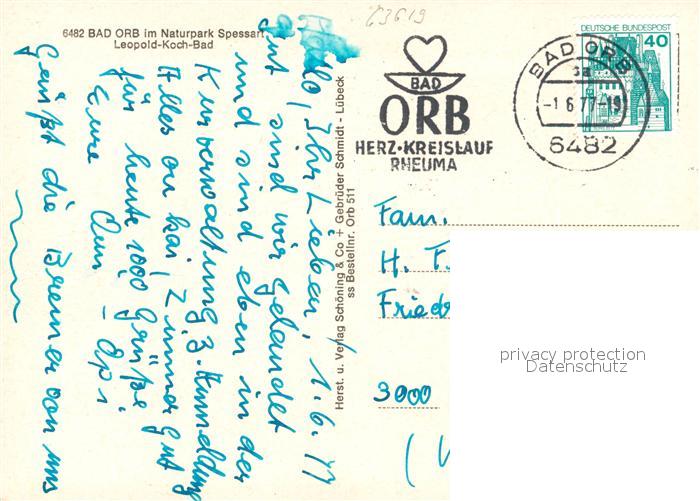 23619
6482 BAD ORB im Naturpark Spessart
Leopold-Koch-Bad
Hallo, Ihr Lieben, 1.6.77
gut sind wir gelandet
und sind eben in der
Kurverwaltung z. Anmeldung
Alles okai, Zimmer gut
für heute 1000 Grüße
Eure Omi - Opi
Grüßt die Bremer von uns
Herst. u. Verlag Schöning & Co + Gebrüder Schmidt - Lübeck
ss Bestellnr. Orb 511
BAD
ORB
HERZ·KREISLAUF
RHEUMA
BAD ORB
sa
-1.6.77-19
6482
DEUTSCHE BUNDESPOST
40
Fam.
H. F.
Fried
3000
(
privacy protection
Datenschutz